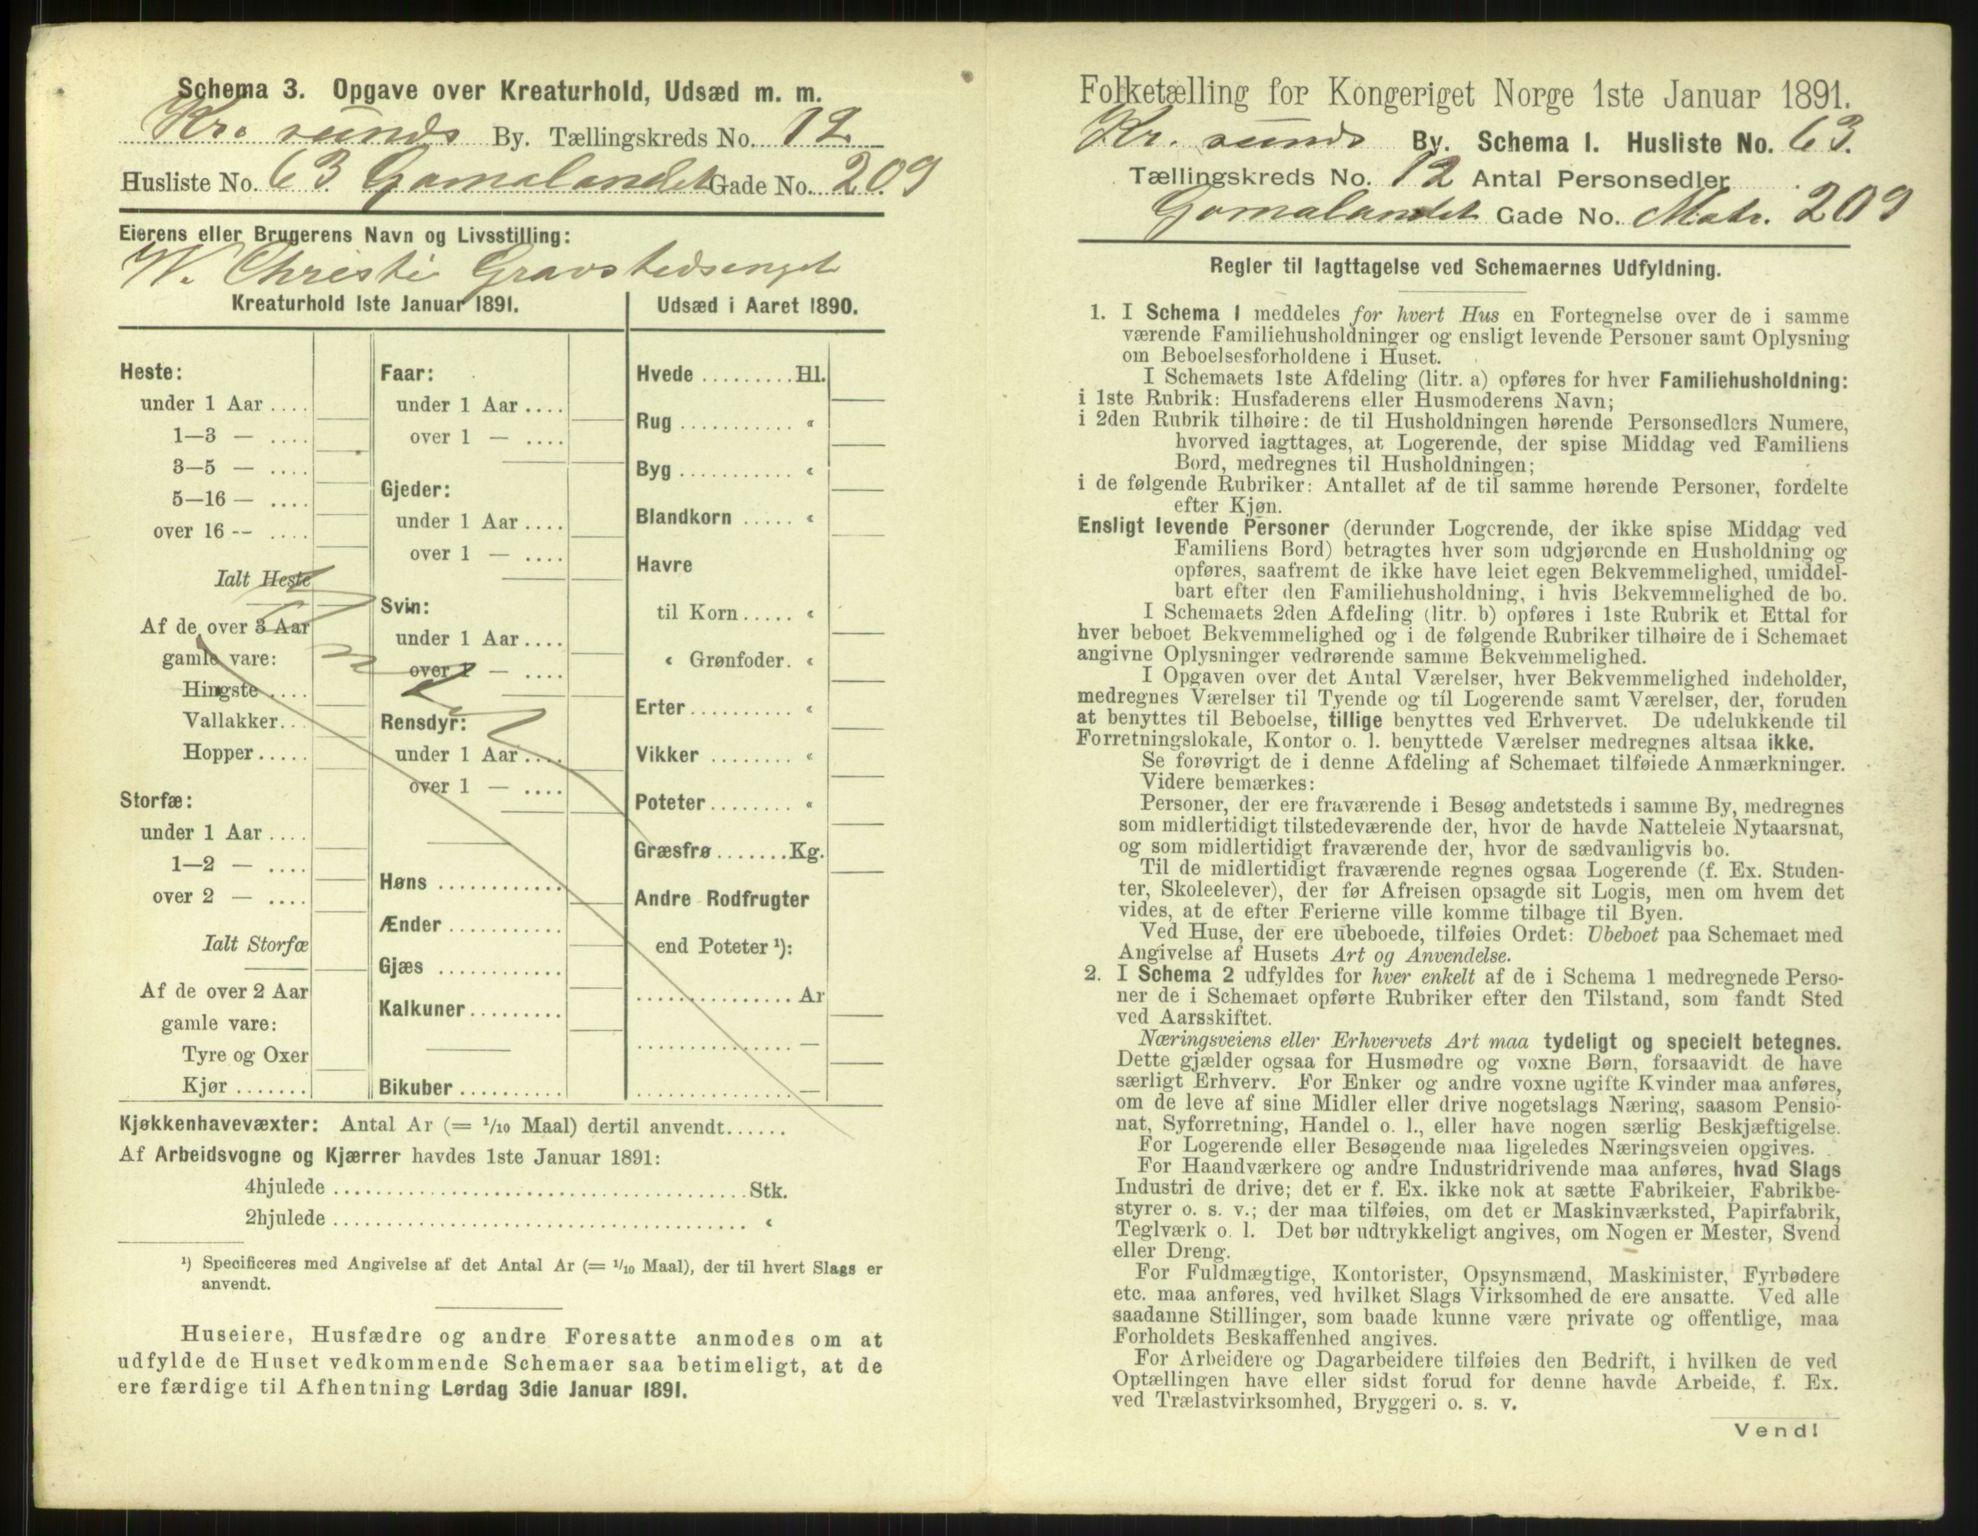 Schema 3. Opgave over Kreaturhold, Udsæd m. m.
Kr. sunds By. Tællingskreds No. 12
Husliste No. 63 Gomalandet Gade No. 209
Eierens eller Brugerens Navn og Livsstilling:
W. Christi Gravstedsenget
Kreaturhold 1ste Januar 1891.
Heste:
under 1 Aar ....
1—3 — ....
3—5 — ....
5—16 — ....
over 16 -- ....
Ialt Heste
Af de over 3 Aar
gamle vare:
Hingste ....
Vallakker...
Hopper.....
Storfæ:
under 1 Aar ....
1—2 — ....
over 2 — ....
Ialt Storfæ
Af de over 2 Aar
gamle vare:
Tyre og Oxer
Kjør .......
Faar:
under 1 Aar ....
over 1 — ....
Gjeder:
under 1 Aar ....
over 1 — ....
Svin:
under 1 Aar ....
over 1 — ....
Rensdyr:
under 1 Aar ....
over 1 — ....
Høns ............
Ænder ...........
Gjæs ............
Kalkuner.........
Bikuber ..........
Udsæd i Aaret 1890.
Hvede .........Hl.
Rug ........... «
Byg ........... «
Blandkorn ..... «
Havre
til Korn..... «
« Grønfoder. «
Erter.......... «
Vikker ........ «
Poteter........ «
Græsfrø.......Kg.
Andre Rodfrugter
end Poteter ¹):
............... Ar
............... —
............... —
Kjøkkenhavevæxter: Antal Ar (= 1/10 Maal) dertil anvendt......
Af Arbeidsvogne og Kjærrer havdes 1ste Januar 1891:
4hjulede .......................................Stk.
2hjulede ....................................... «
¹) Specificeres med Angivelse af det Antal Ar (= 1/10 Maal), der til hvert Slags er
anvendt.
Huseiere, Husfædre og andre Foresatte anmodes om at
udfylde de Huset vedkommende Schemaer saa betimeligt, at de
ere færdige til Afhentning Lørdag 3die Januar 1891.
Folketælling for Kongeriget Norge 1ste Januar 1891.
Kr. sunds By. Schema 1. Husliste No. 63.
Tællingskreds No. 12 Antal Personsedler
Gomalandet Gade No. Matr. 209
Regler til Iagttagelse ved Schemaernes Udfyldning.
1. I Schema 1 meddeles for hvert Hus en Fortegnelse over de i samme
værende Familiehusholdninger og ensligt levende Personer samt Oplysning
om Beboelsesforholdene i Huset.
I Schemaets 1ste Afdeling (litr. a) opføres for hver Familiehusholdning:
i 1ste Rubrik: Husfaderens eller Husmoderens Navn;
i 2den Rubrik tilhøire: de til Husholdningen hørende Personsedlers Numere,
hvorved iagttages, at Logerende, der spise Middag ved Familiens
Bord, medregnes til Husholdningen;
i de følgende Rubriker: Antallet af de til samme hørende Personer, fordelte
efter Kjøn.
Ensligt levende Personer (derunder Logerende, der ikke spise Middag ved
Familiens Bord) betragtes hver som udgjørende en Husholdning og
opføres, saafremt de ikke have leiet egen Bekvemmelighed, umiddel-
bart efter den Familiehusholdning, i hvis Bekvemmelighed de bo.
I Schemaets 2den Afdeling (litr. b) opføres i 1ste Rubrik et Ettal for
hver beboet Bekvemmelighed og i de følgende Rubriker tilhøire de i Schemaet
angivne Oplysninger vedrørende samme Bekvemmelighed.
I Opgaven over det Antal Værelser, hver Bekvemmelighed indeholder,
medregnes Værelser til Tyende og til Logerende samt Værelser, der, foruden
at benyttes til Beboelse, tillige benyttes ved Erhvervet. De udelukkende til
Forretningslokale, Kontor o. l. benyttede Værelser medregnes altsaa ikke.
Se forøvrigt de i denne Afdeling af Schemaet tilføiede Anmærkninger.
Videre bemærkes:
Personer, der ere fraværende i Besøg andetsteds i samme By, medregnes
som midlertidigt tilstedeværende der, hvor de havde Natteleie Nytaarsnat,
og som midlertidigt fraværende der, hvor de sædvanligvis bo.
Til de midlertidigt fraværende regnes ogsaa Logerende (f. Ex. Studen-
ter, Skoleelever), der før Afreisen opsagde sit Logis, men om hvem det
vides, at de efter Ferierne ville komme tilbage til Byen.
Ved Huse, der ere ubeboede, tilføies Ordet: Ubeboet paa Schemaet med
Angivelse af Husets Art og Anvendelse.
2. I Schema 2 udfyldes for hver enkelt af de i Schema 1 medregnede Perso-
ner de i Schemaet opførte Rubriker efter den Tilstand, som fandt Sted
ved Aarsskiftet.
Næringsveiens eller Erhvervets Art maa tydeligt og specielt betegnes.
Dette gjælder ogsaa for Husmødre og voxne Børn, forsaavidt de have
særligt Erhverv. For Enker og andre voxne ugifte Kvinder maa anføres,
om de leve af sine Midler eller drive nogetslags Næring, saasom Pensio-
nat, Syforretning, Handel o. l., eller have nogen særlig Beskjæftigelse.
For Logerende eller Besøgende maa ligeledes Næringsveien opgives.
For Haandværkere og andre Industridrivende maa anføres, hvad Slags
Industri de drive; det er f. Ex. ikke nok at sætte Fabrikeier, Fabrikbe-
styrer o. s. v.; der maa tilføies, om det er Maskinværksted, Papirfabrik,
Teglværk o. l. Det bør udtrykkeligt angives, om Nogen er Mester, Svend
eller Dreng.
For Fuldmægtige, Kontorister, Opsynsmænd, Maskinister, Fyrbødere
etc. maa anføres, ved hvilket Slags Virksomhed de ere ansatte. Ved alle
saadanne Stillinger, som baade kunne være private og offentlige, maa
Forholdets Beskaffenhed angives.
For Arbeidere og Dagarbeidere tilføies den Bedrift, i hvilken de ved
Optællingen have eller sidst forud for denne havde Arbeide, f. Ex.
ved Trælastvirksomhed, Bryggeri o. s. v.
Vend!